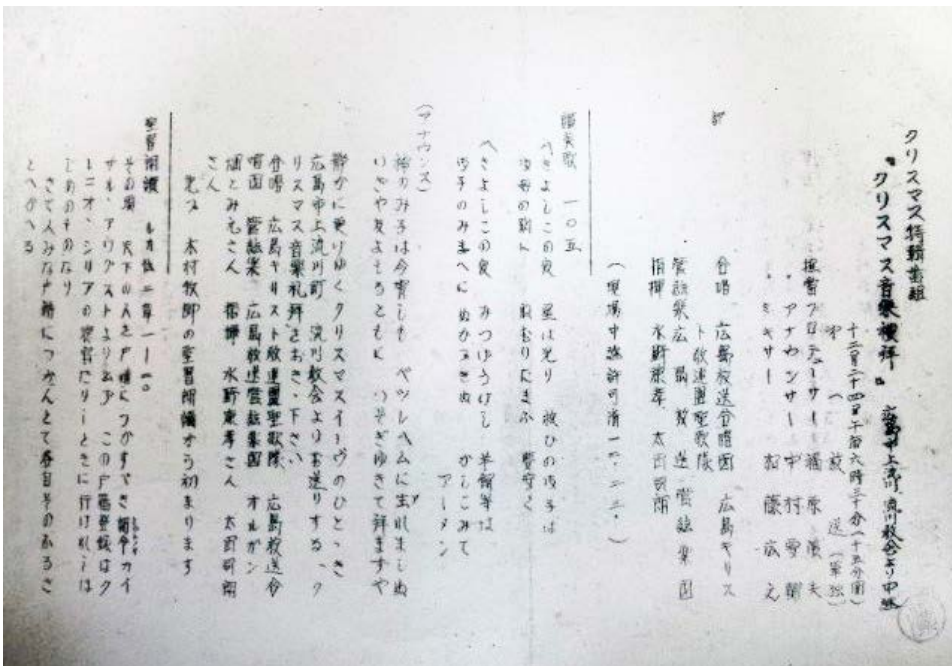 クリスマス特輯番組
"クリスマス音楽礼拝" 広島市上流川 流川教会より中継
十二月二十四日午后六時三十分(十五分間)
放送(単独)
プロデューサー
アナウンサー 中村
ミキサー 広
合唱 広島放送合唱団 広島キリス
ト放送團聖歌隊
管絃楽 広島放送管絃楽団
指揮 水野 太田司朗
(現場中継許可済 一二・二二・)
讃美歌 一〇五
へきよしこの夜 星は光り 救ひのみ子は
み母の胸に ねむりたまふ
へきよしこの夜 みつげうけし 羊飼等は
み子のみまへに ぬかづきぬ かしこみて
アーメン
(アナウンス)
神のみ子は今宵しも ベツレヘムに生れましぬ
いざや友よもろともに いそぎゆきて拝まずや
静かに更けゆくクリスマスイーヴのひととき
広島市上流川町 流川教会よりお送りする、ク
リスマス音楽礼拝をおきゝ下さい
合唱 広島キリスト放送團聖歌隊 広島放送合
唱団 管絃楽 広島放送管絃楽団 オルガン
とみえさん 指揮 水野 さん 太田司朗
さん
先づ 木村牧師の聖書朗読から初まります
聖書朗読 ルカ伝二章一ー一〇
その頃 天下の人を戸籍につかすべき詔令カイ
サル、アウグストより出づ この戸籍登録はク
レニオ、シリアの総督たりしときに行はれしは
じめのものなり
さて人みな戸籍につかんとて各自そのふるさ
とへかへる